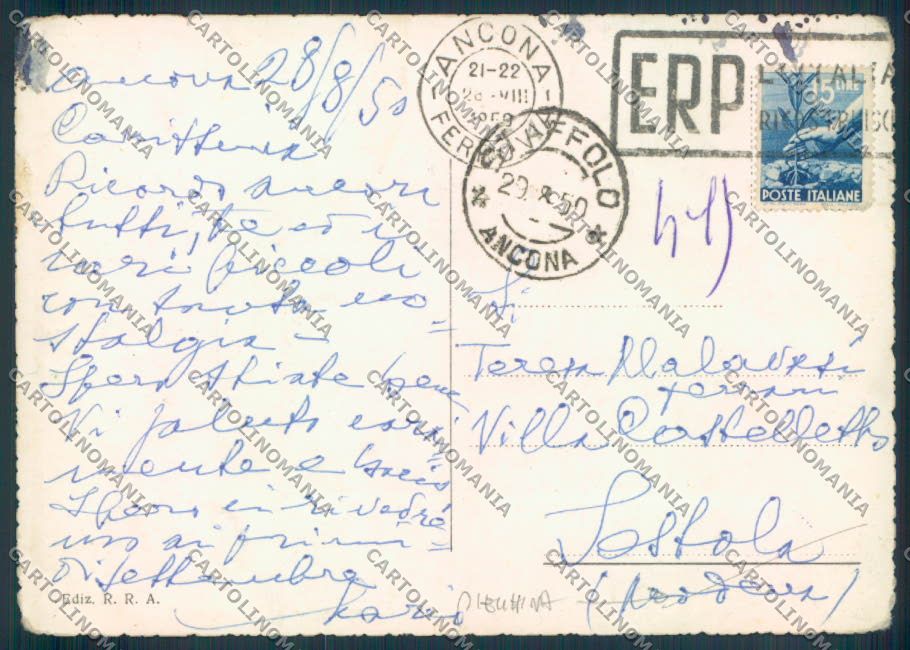 Ancona 28/8/50
Carissima
Ricordo ancora
tutti, te ed i
cari piccoli
con tanta no=
stalgia -
Spero stiate bene,
Vi saluto cara
mente e bacio
Spero in rivedre
mo ai primi =
di Settembre
Ediz. R. R. A.
ANCONA
21-22
28 VIII
FERROVIA
ANCONA
ERP
15 LIRE
POSTE ITALIANE
Teresa Malavasi
Ferrari
Villa Castelletto
Sestola
(Modena)
CARTOLINOMANIA